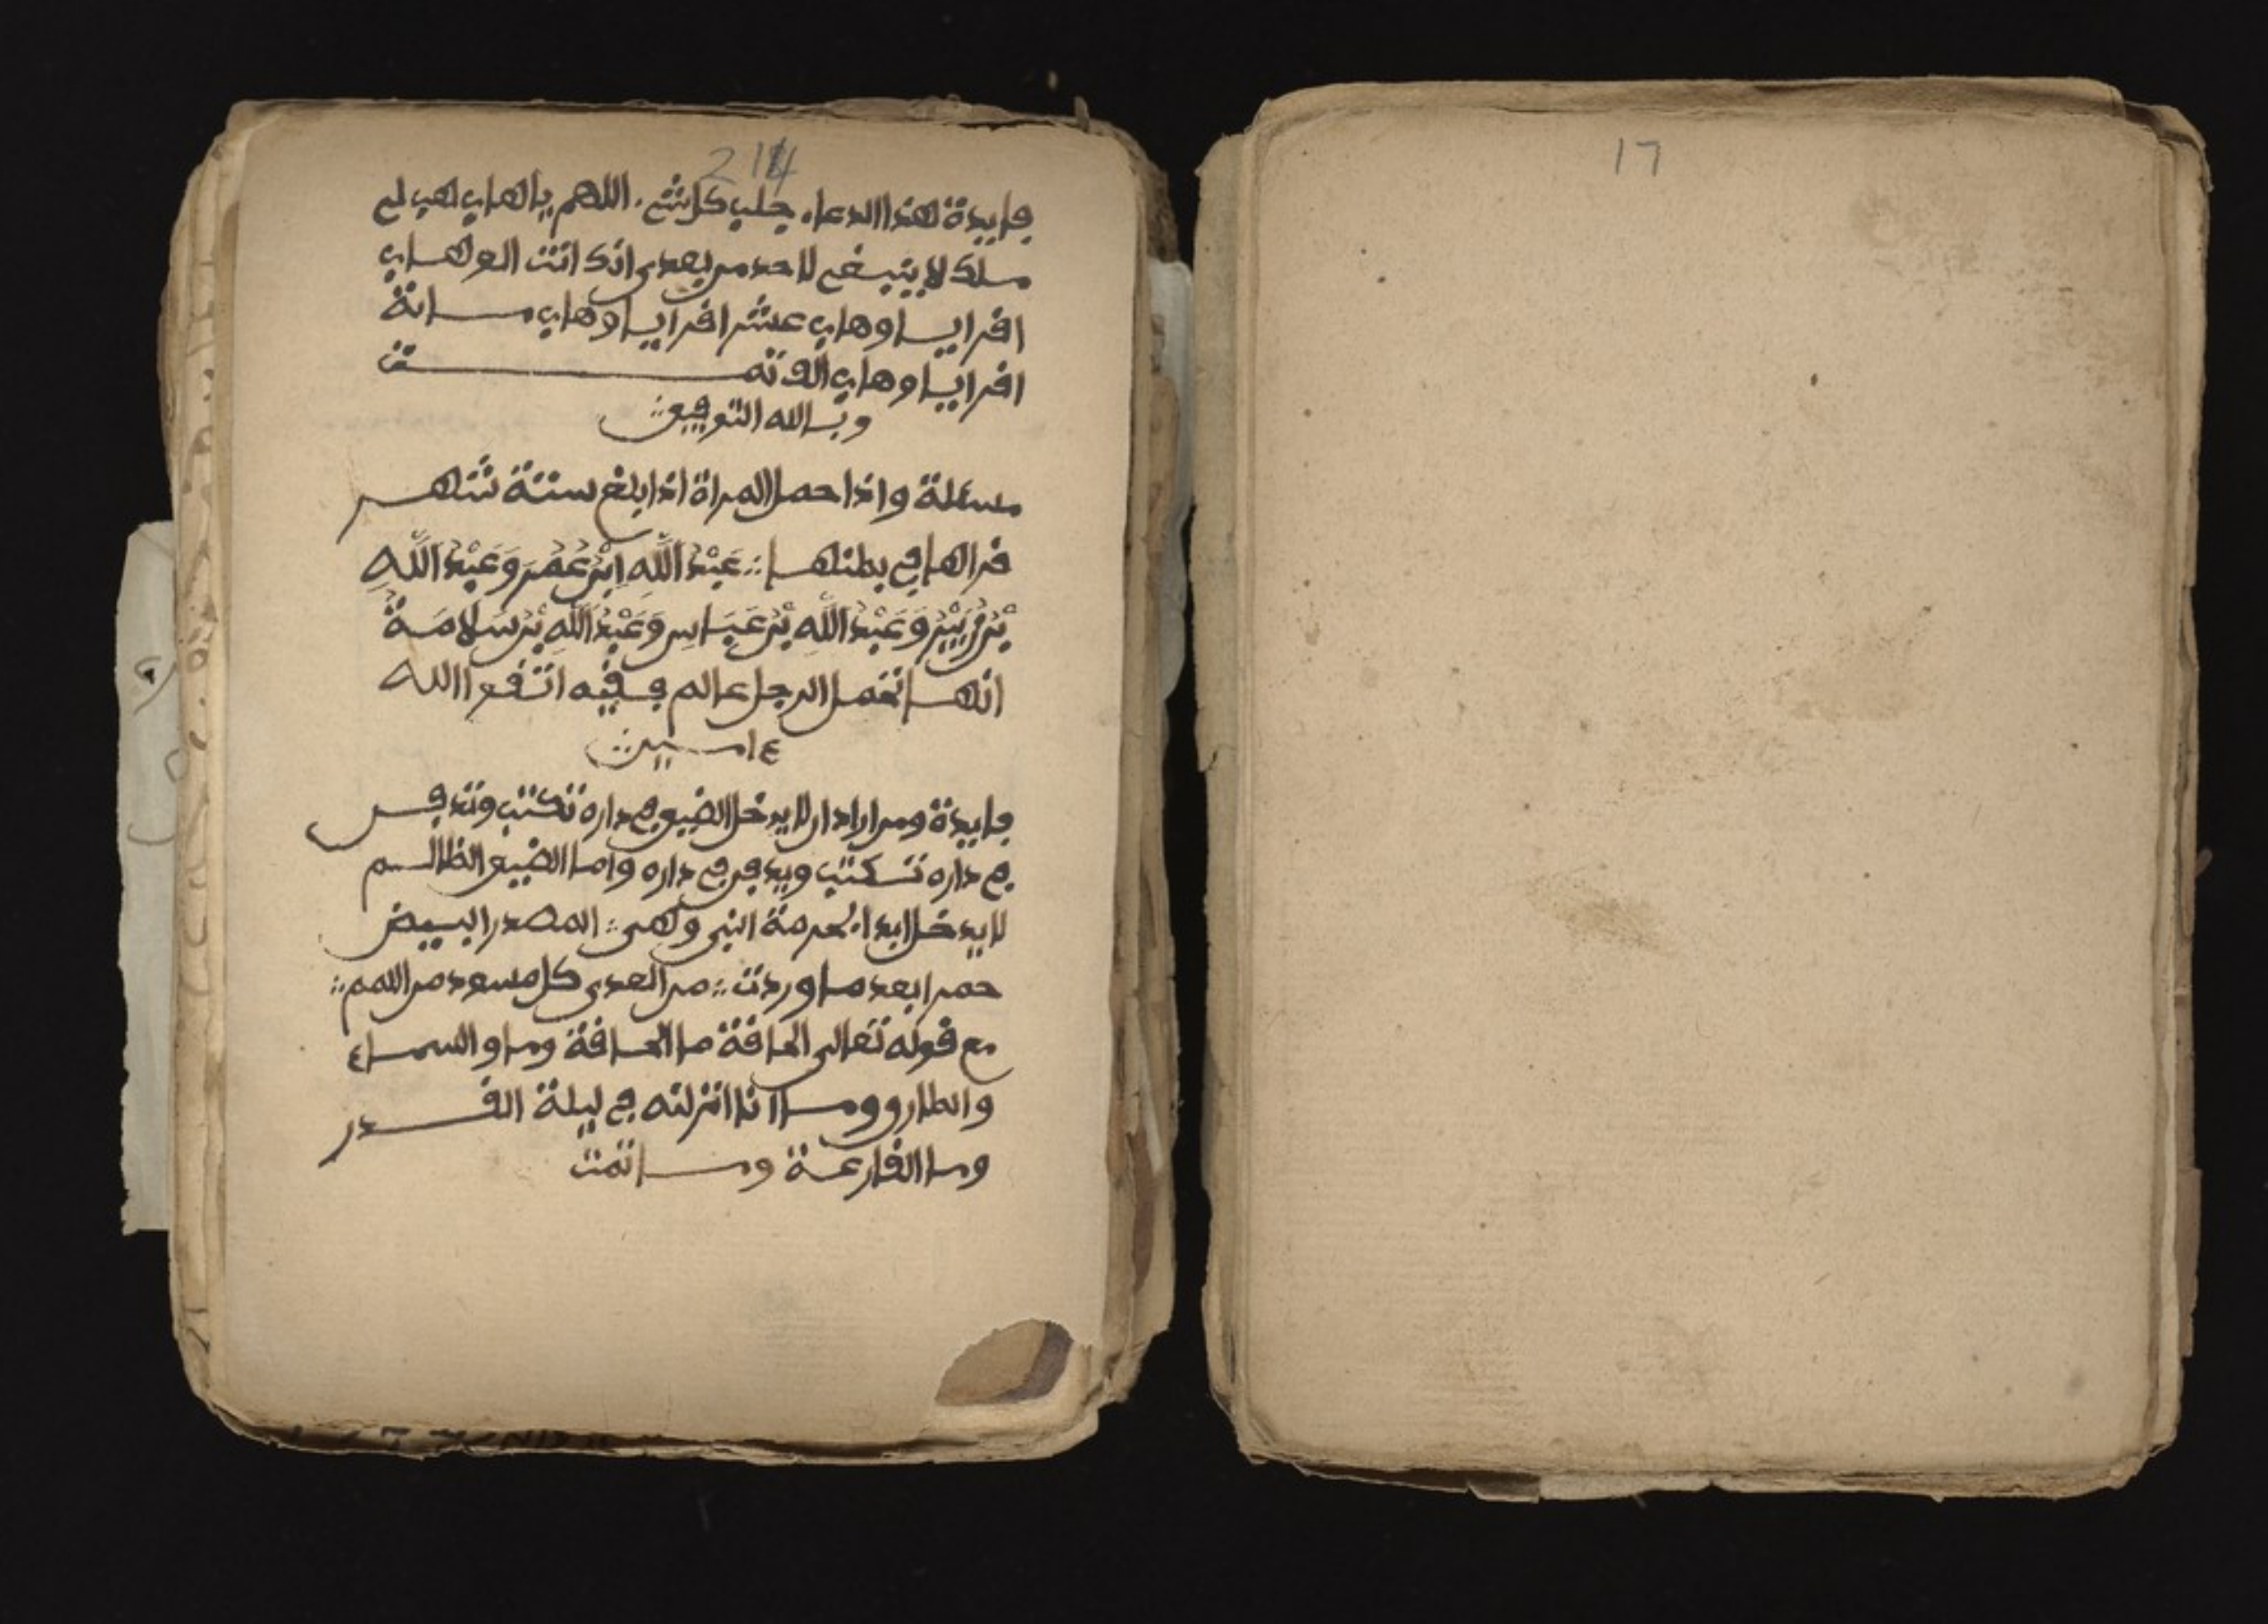 214
فايدة هذا الدعاء جلب كل شئ . اللهم يا لهاب هب لي
ملك لا ينبغي لاحد من بعدى انك انت الوهاب
اقرا يا وهاب عشر اقرا يا وهاب مساية
اقرا يا وهاب الف تمت
وبالله التوفيق
مسئلة واذا حمل المراة اذا بلغ ستة شهر
قرالها في بطنها عَبْدُ اللَّهِ اِبْنُ عُمَرَ وَعَبْدُ اللَّهِ
بْنُ زُبَيْرُ وَعَبْدُ اللَّهِ بْنُ عَبَاسِ وَعَبْدُ اللَّهِ بْنُ سَلَامَةُ
انها تحمل الرجل عالم فقيه اتقوا الله
ءامين
فايدة ومن اراد ان لا يدخل الضيف في داره تكتب وتدفن
في داره تكتب ويدفن في داره واما الضيف الظالم
لا يدخل ابدا بحرمة النبي وهى المصدر البيض
حمرا بعد ما وردت من العدى كل مسود من اللمم
مع قوله تعالى الحاقة ما الحاقة وما والسماء
والطارق وما انا انزلنه في ليلة القدر
وما القارعة وما تمت
17